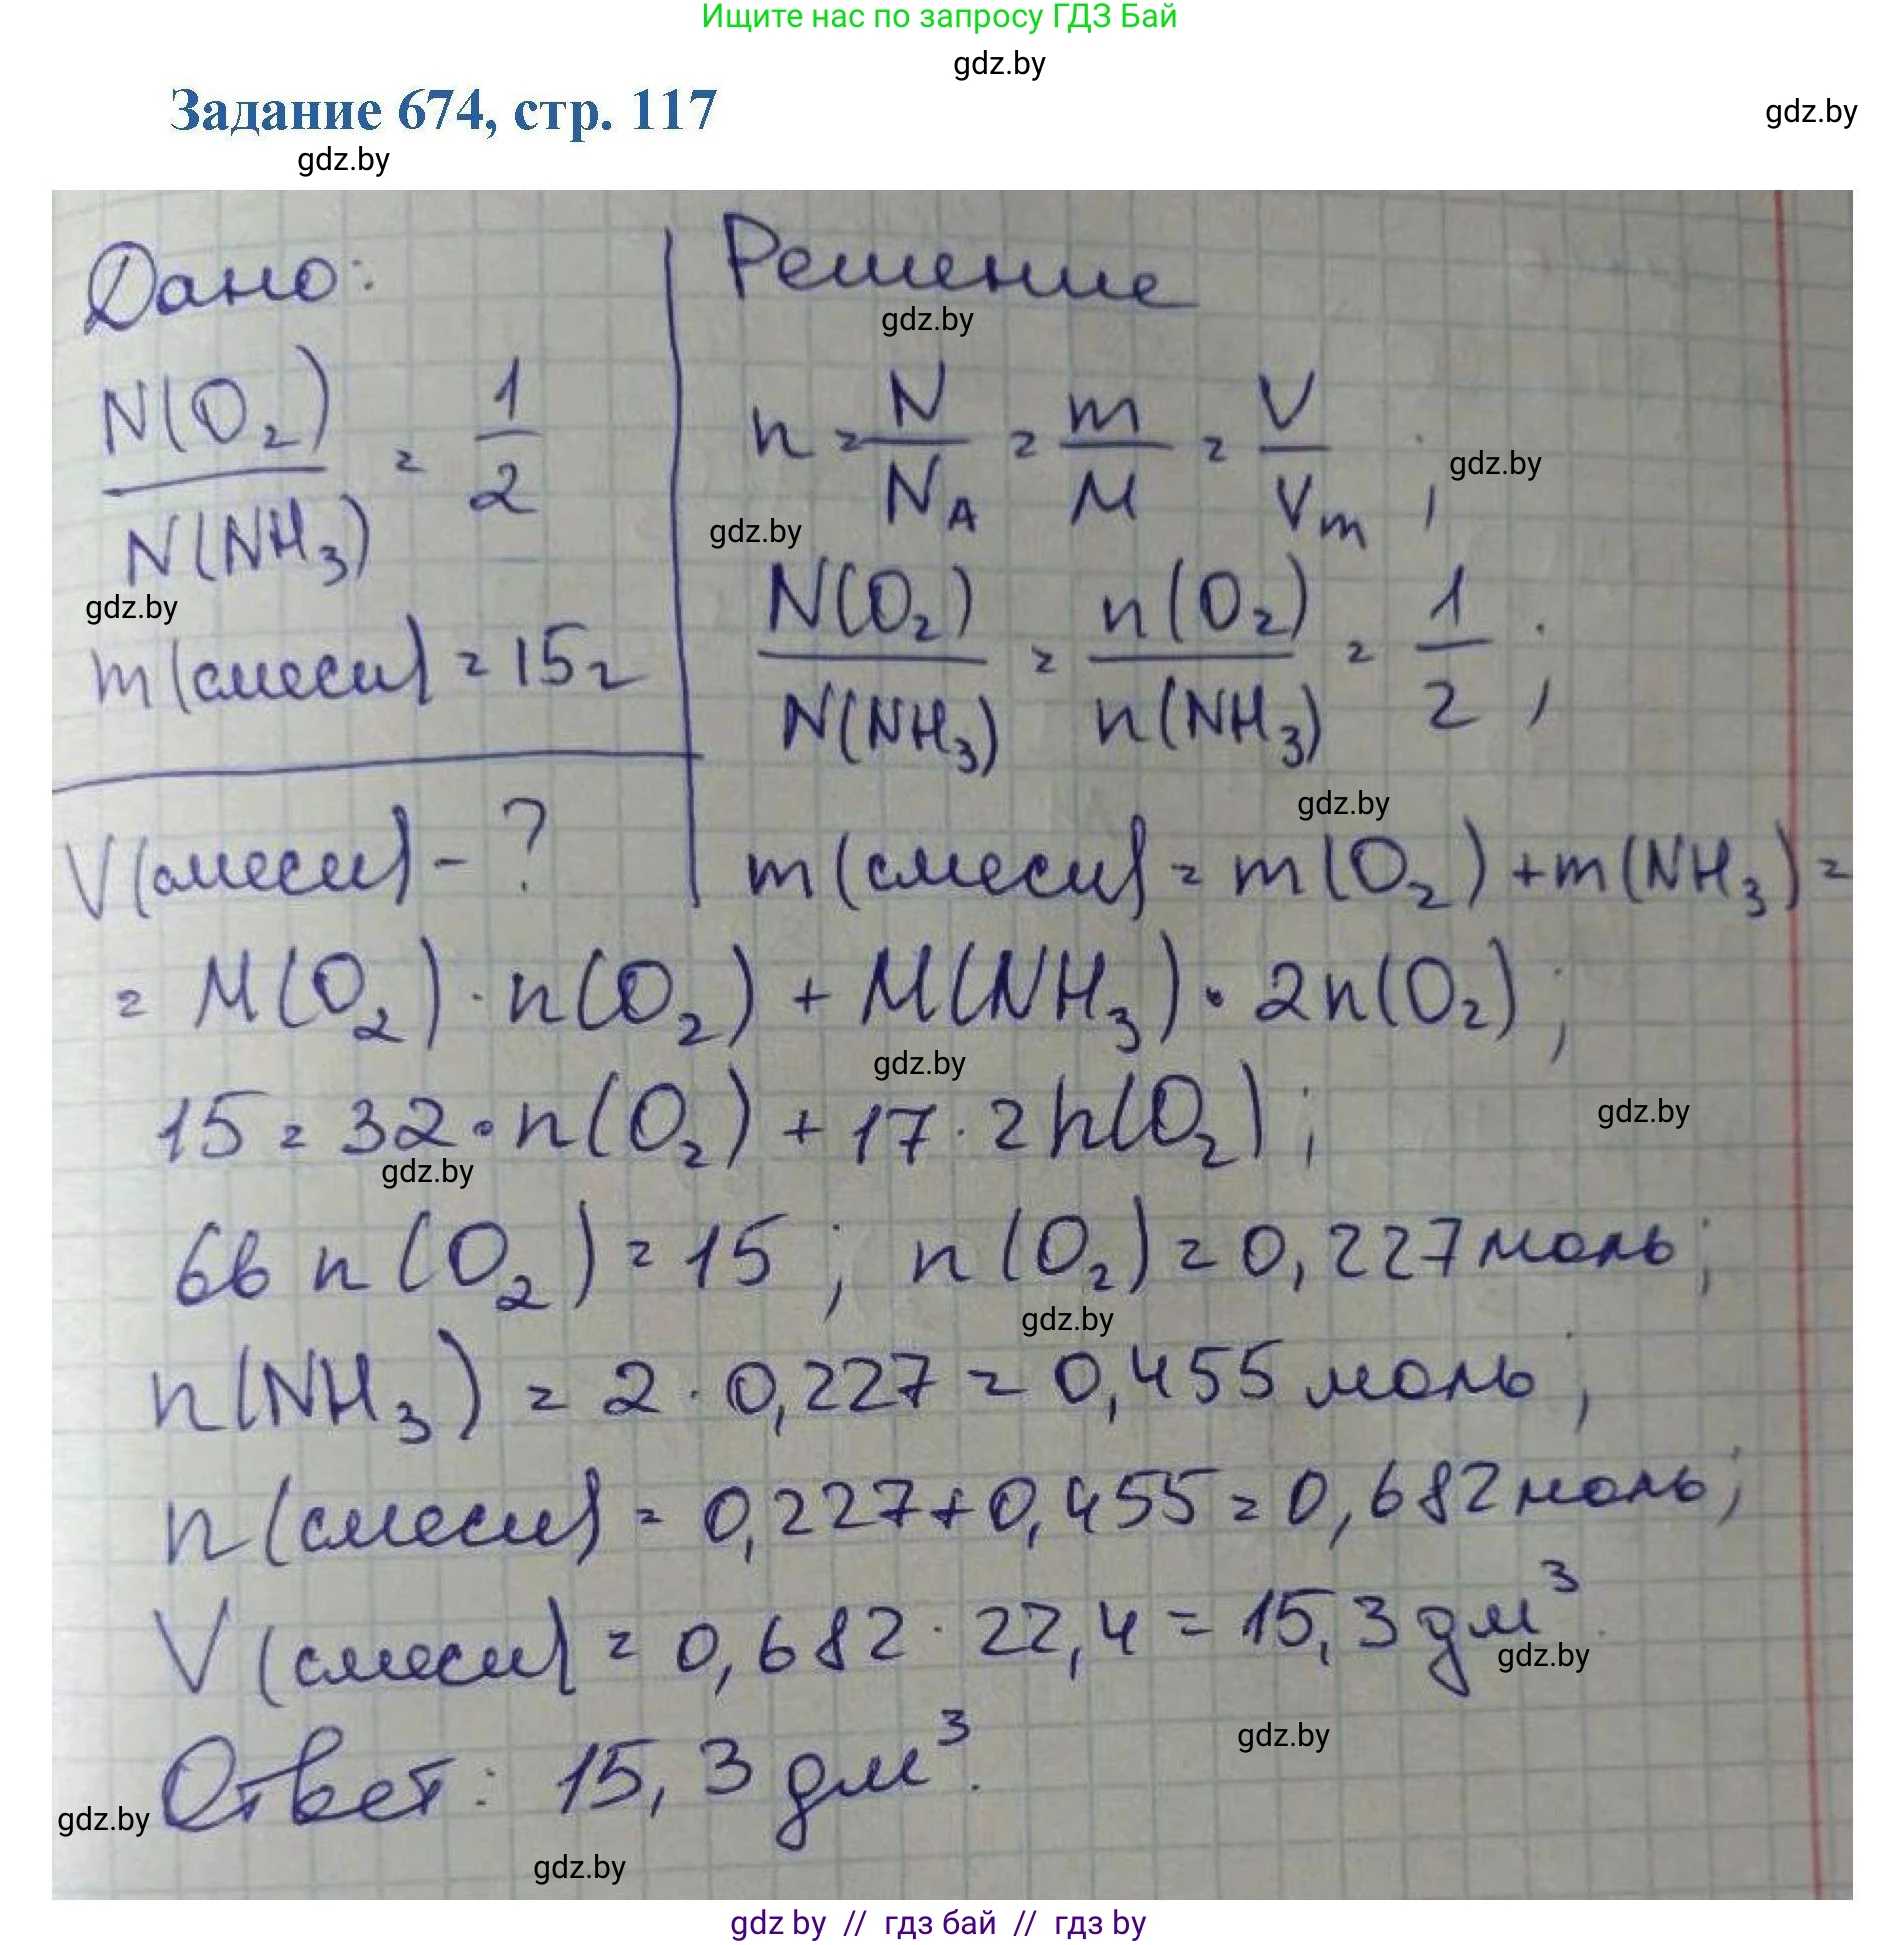 Ищите нас по запросу ГДЗ Бай
gdz.by
Задание 674, стр. 117
gdz.by
gdz.by
Дано:
N(O₂)/N(NH₃) = 1/2
gdz.by
m(смеси) = 15г
V(смеси) - ?
Решение
gdz.by
n = N/N_A = m/M = V/V_m ;
gdz.by
gdz.by
N(O₂)/N(NH₃) = n(O₂)/n(NH₃) = 1/2 ;
gdz.by
m(смеси) = m(O₂) + m(NH₃) =
= M(O₂) · n(O₂) + M(NH₃) · 2n(O₂) ;
gdz.by
15 = 32 · n(O₂) + 17 · 2n(O₂) ;
gdz.by
gdz.by
66 n(O₂) = 15 ; n(O₂) = 0,227 моль ;
gdz.by
n(NH₃) = 2 · 0,227 = 0,455 моль ;
n(смеси) = 0,227 + 0,455 = 0,682 моль ;
V(смеси) = 0,682 · 22,4 = 15,3 дм³.
gdz.by
gdz.by
Ответ: 15,3 дм³.
gdz.by
gdz.by
gdz by // гдз бай // гдз by